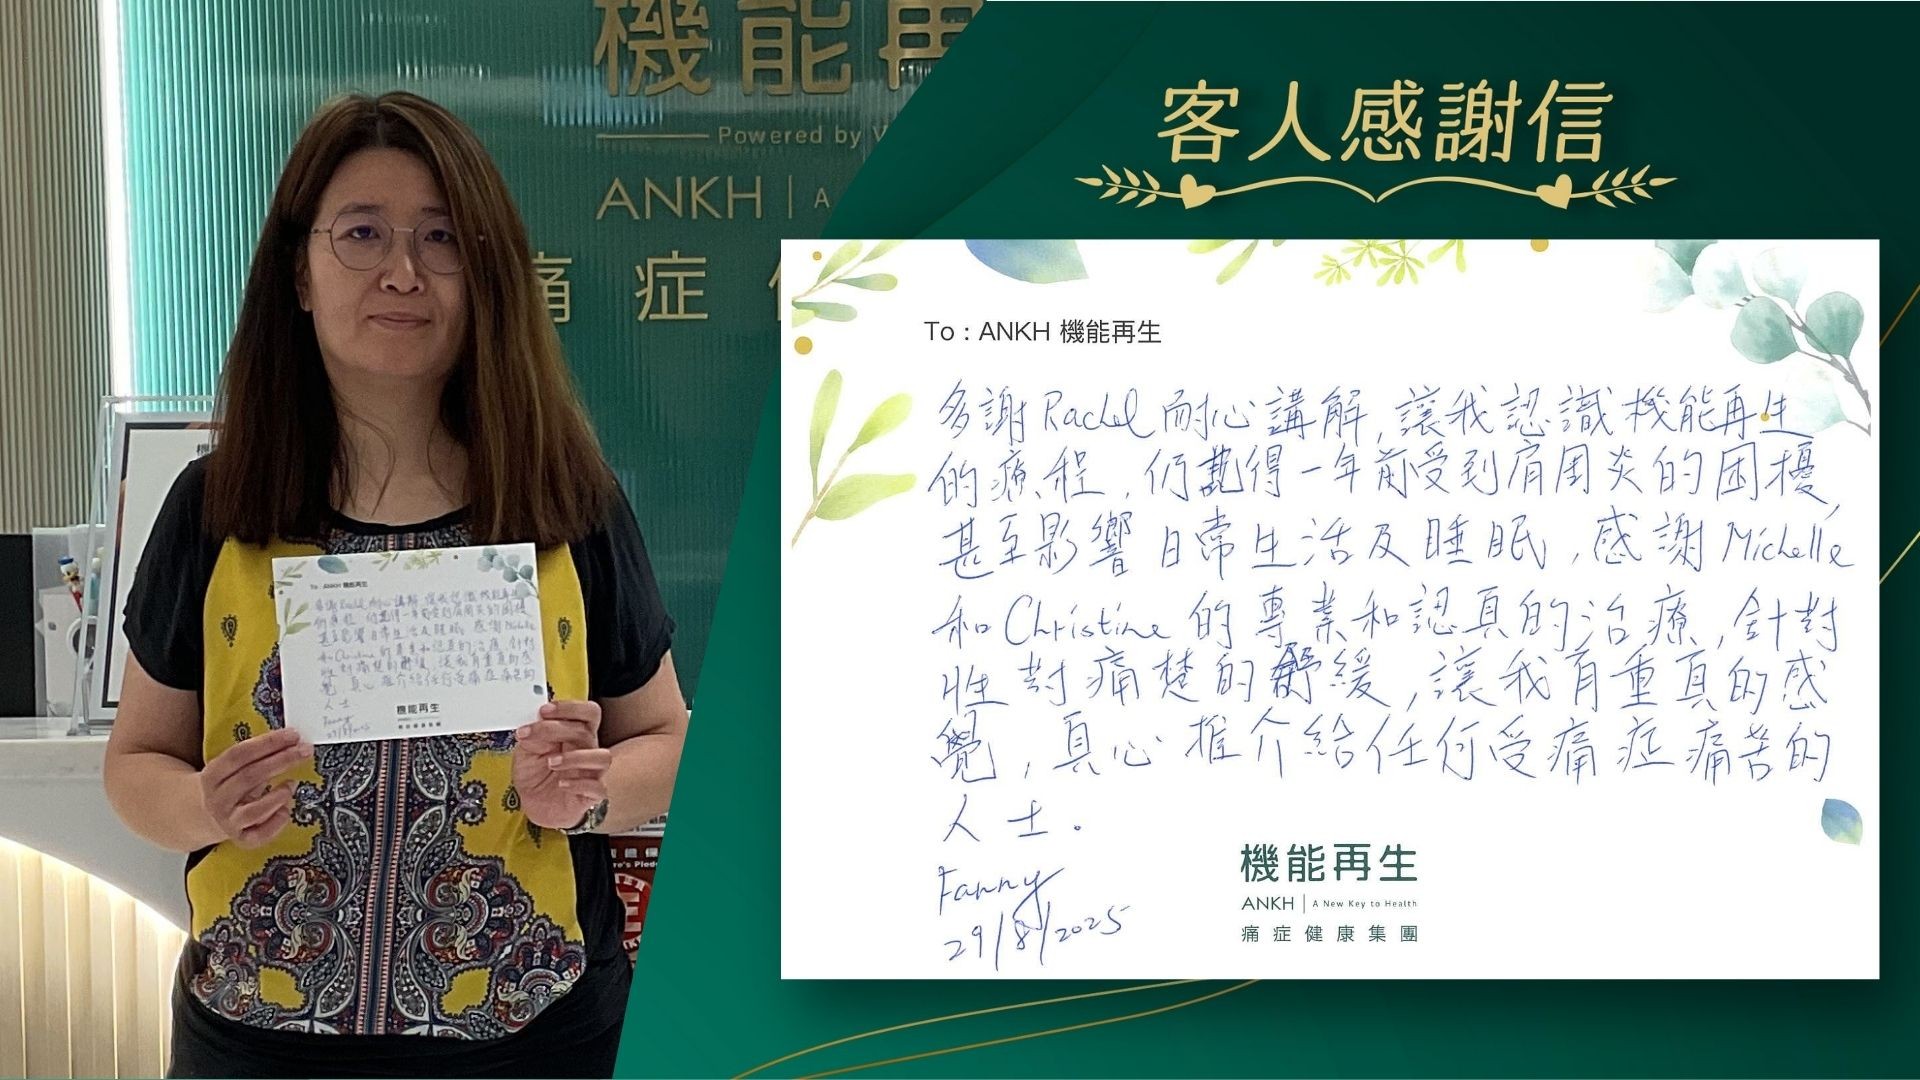 機能再
Powered by
ANKH | A
痛症
客人感謝信
To : ANKH 機能再生
多謝Rachel耐心講解,讓我認識機能再生
的療程,
一年前受到肩周炎的困擾,
甚至影響日常生活及睡眠,感謝Michelle
和Christine的專業和認真的治療,針對
性對痛楚的舒緩,讓我有重真的感
覺,真心推介給任何受痛症痛苦的
人士。
Fanny
29/8/2025
機能再生
ANKH | A New Key to Health
痛症健康集團